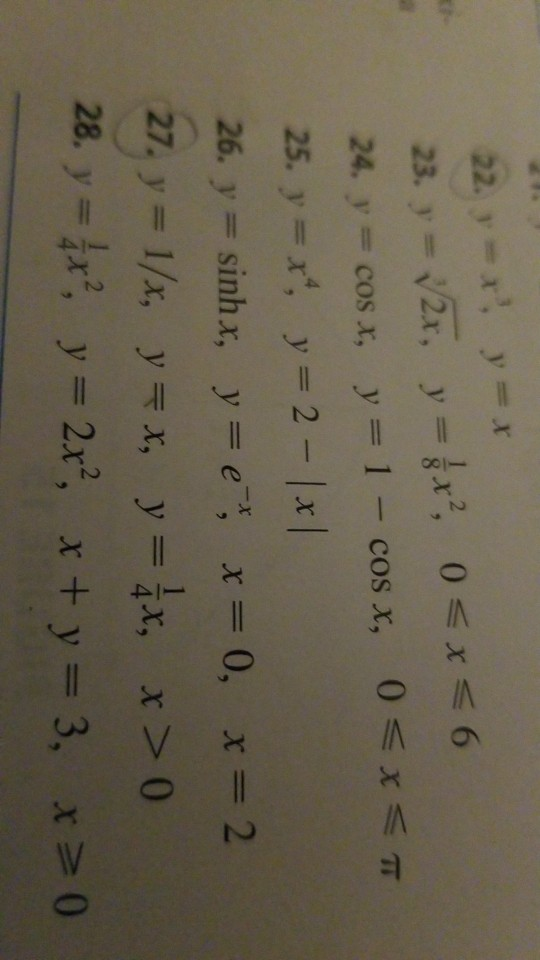 22. y = x³, y = x
23. y = ∛2x, y = ⅛x², 0 ≤ x ≤ 6
24. y = cos x, y = 1 − cos x, 0 ≤ x ≤ π
25. y = x⁴, y = 2 − |x|
26. y = sinh x, y = e⁻ˣ, x = 0, x = 2
27. y = 1/x, y = x, y = ¼x, x > 0
28. y = ¼x², y = 2x², x + y = 3, x ≥ 0